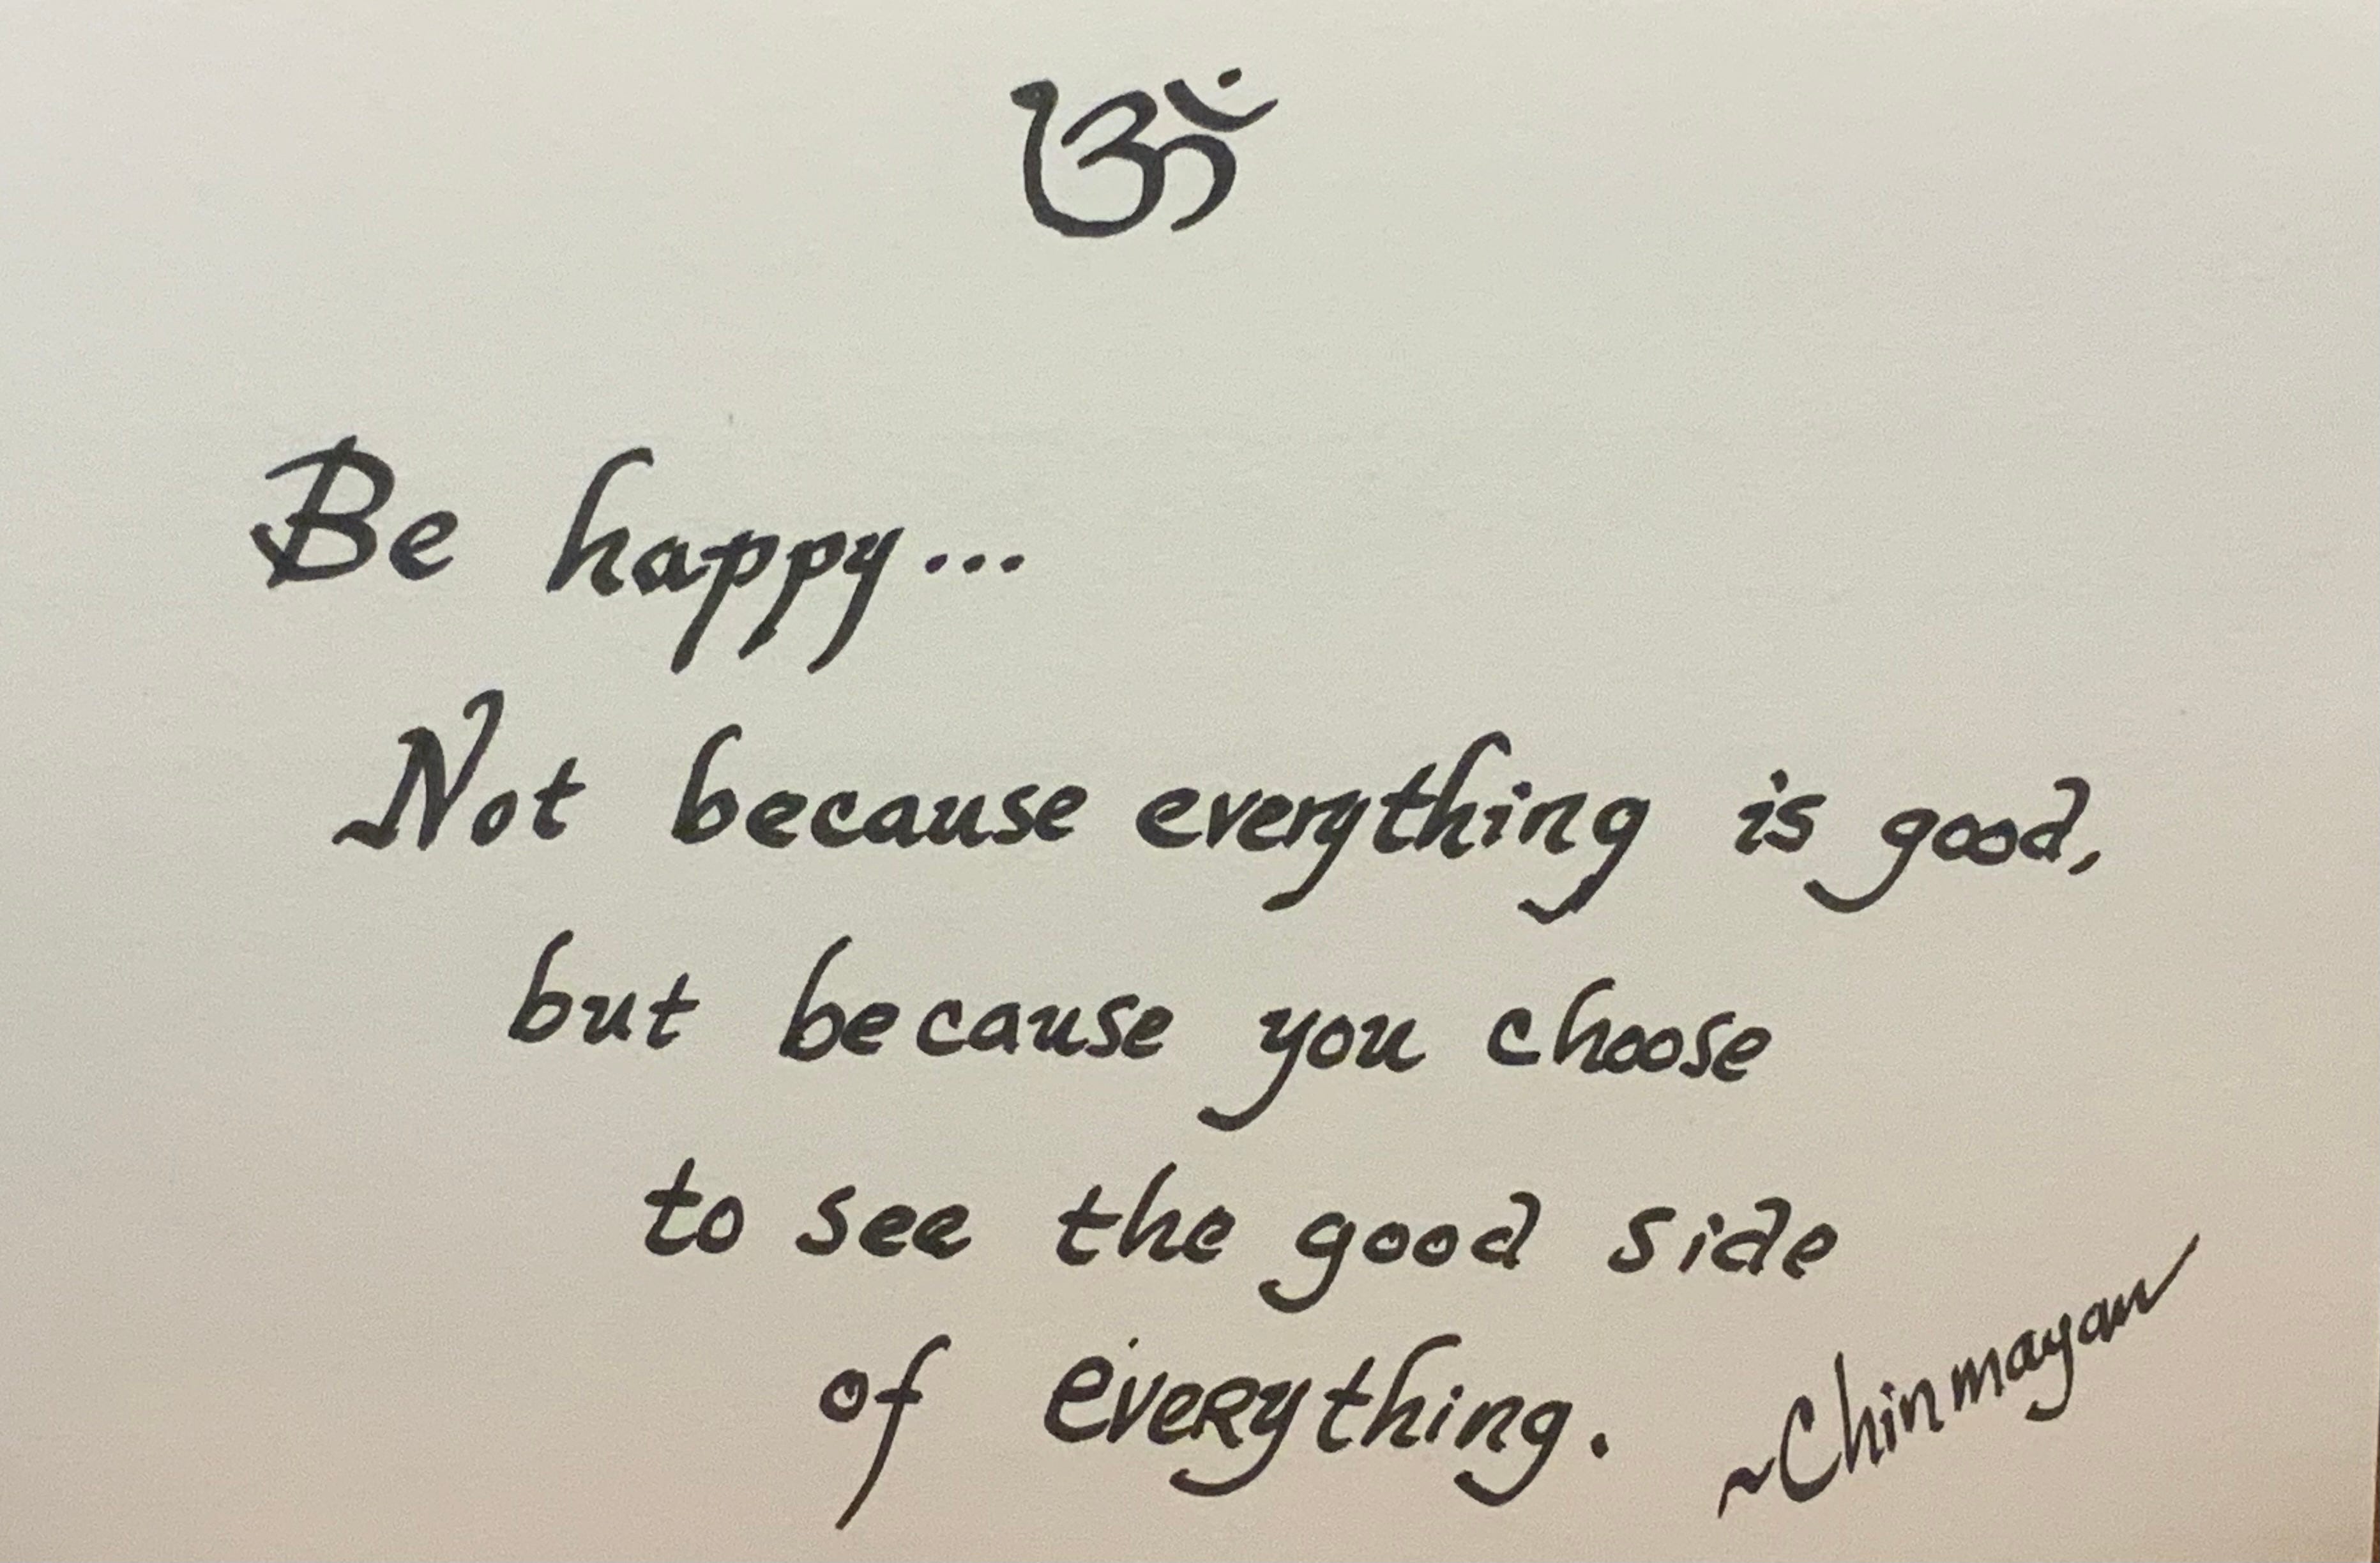 ॐ
Be happy...
Not because everything is good,
but because you choose
to see the good side
of everything.
~Chinmayan